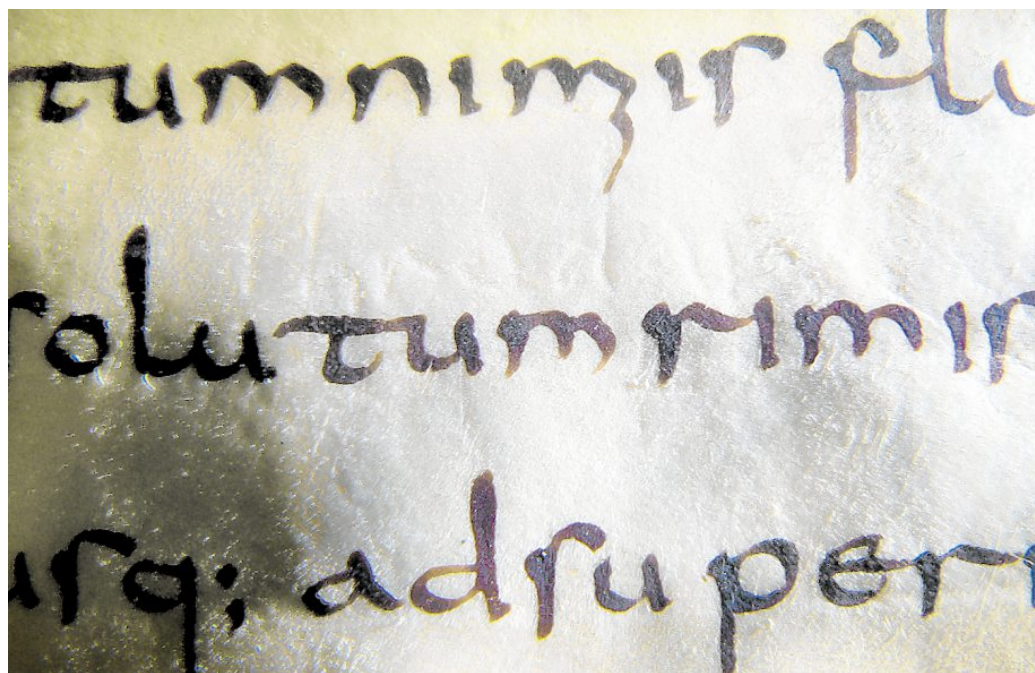 tumnimis flu
solutumsimis
usq; adsuper